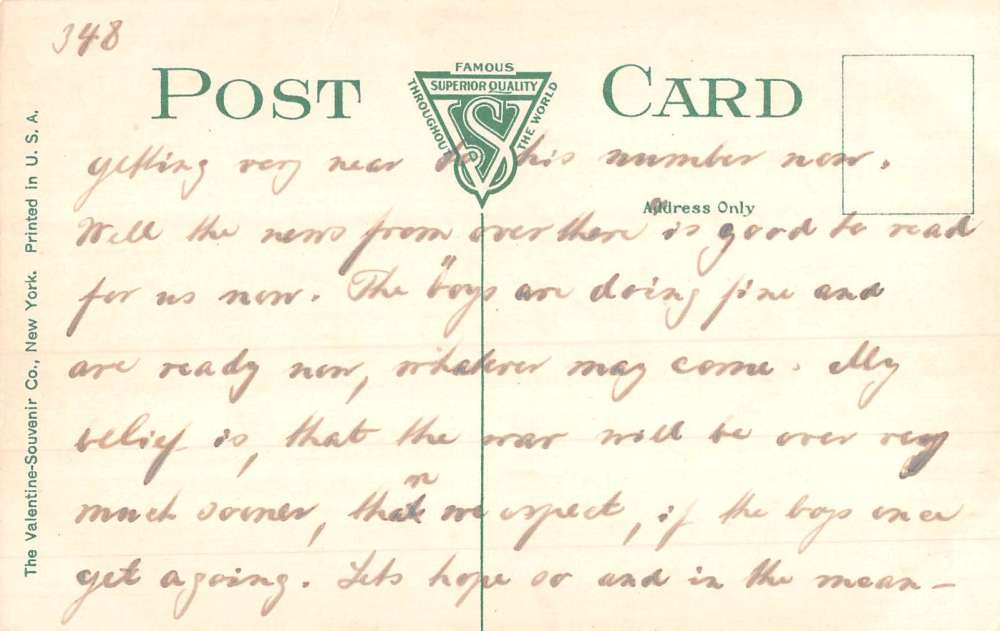 348
POST CARD
FAMOUS
SUPERIOR QUALITY
THROUGHOUT THE WORLD
VS
Address Only
The Valentine-Souvenir Co., New York. Printed in U. S. A.
getting very near to his number now.
Well the news from over there is good to read
for us now. The "boys are doing fine and
are ready now, whatever may come. My
belief is, that the war will be over very
much sooner, than we expect, if the boys once
get agoing. Lets hope so and in the mean-